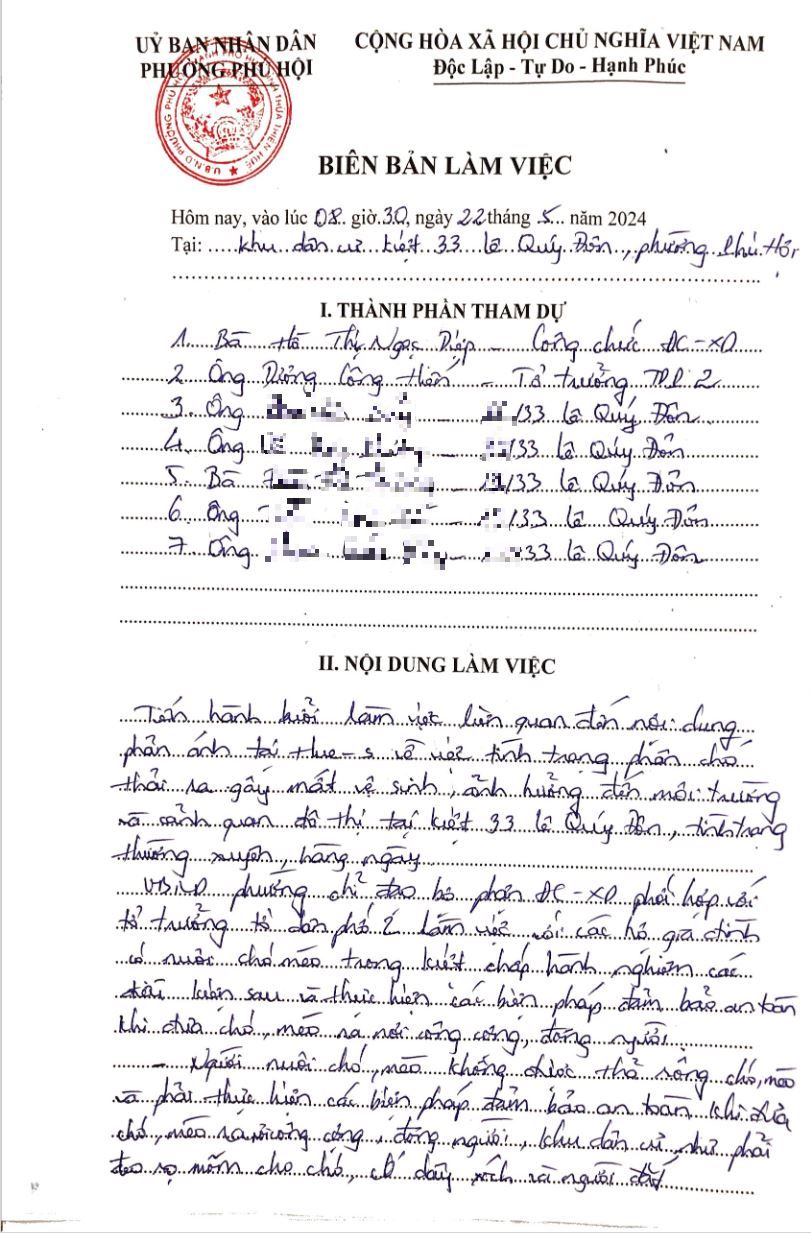 UỶ BAN NHÂN DÂN
PHƯỜNG PHÚ HỘI
CỘNG HÒA XÃ HỘI CHỦ NGHĨA VIỆT NAM
Độc Lập - Tự Do - Hạnh Phúc
BIÊN BẢN LÀM VIỆC
Hôm nay, vào lúc 08 giờ 30, ngày 22 tháng 5 năm 2024
Tại: khu dân cư kiệt 33 Lê Quý Đôn, phường Phú Hội
I. THÀNH PHẦN THAM DỰ
1. Bà Hồ Thị Ngọc Diệp - Công chức ĐC-XD
2. Ông Dương Công Hiến - Tổ trưởng TDP 2
3. Ông /33 Lê Quý Đôn
4. Ông /33 Lê Quý Đôn
5. Bà /33 Lê Quý Đôn
6. Ông /33 Lê Quý Đôn
7. Ông 33 Lê Quý Đôn
II. NỘI DUNG LÀM VIỆC
Tiến hành buổi làm việc liên quan đến nội dung
phản ánh tại Hue-s về việc tình trạng phân chó
thải ra gây mất vệ sinh, ảnh hưởng đến môi trường
và cảnh quan đô thị tại kiệt 33 Lê Quý Đôn, tình trạng
thường xuyên, hàng ngày
UBND phường chỉ đạo bộ phận ĐC-XD phối hợp với
tổ trưởng tổ dân phố 2 làm việc với các hộ gia đình
có nuôi chó mèo trong kiệt chấp hành nghiêm các
điều kiện sau và thực hiện các biện pháp đảm bảo an toàn
khi đưa chó, mèo ra nơi công cộng, đông người.
- Người nuôi chó, mèo không được thả rông chó, mèo
và phải thực hiện các biện pháp đảm bảo an toàn khi đưa
chó, mèo ra nơi công cộng, đông người, khu dân cư như phải
đeo rọ mõm cho chó, có dây xích và người dắt